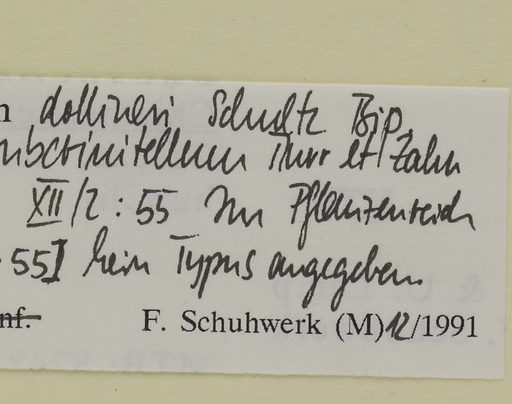 n dollineri Schultz Bip.
ubcrinitellum Murr et Zahn
XII/2 : 55 Im Pflanzenreich
55] kein Typus angegeben.
nf. F. Schuhwerk (M) 12/1991